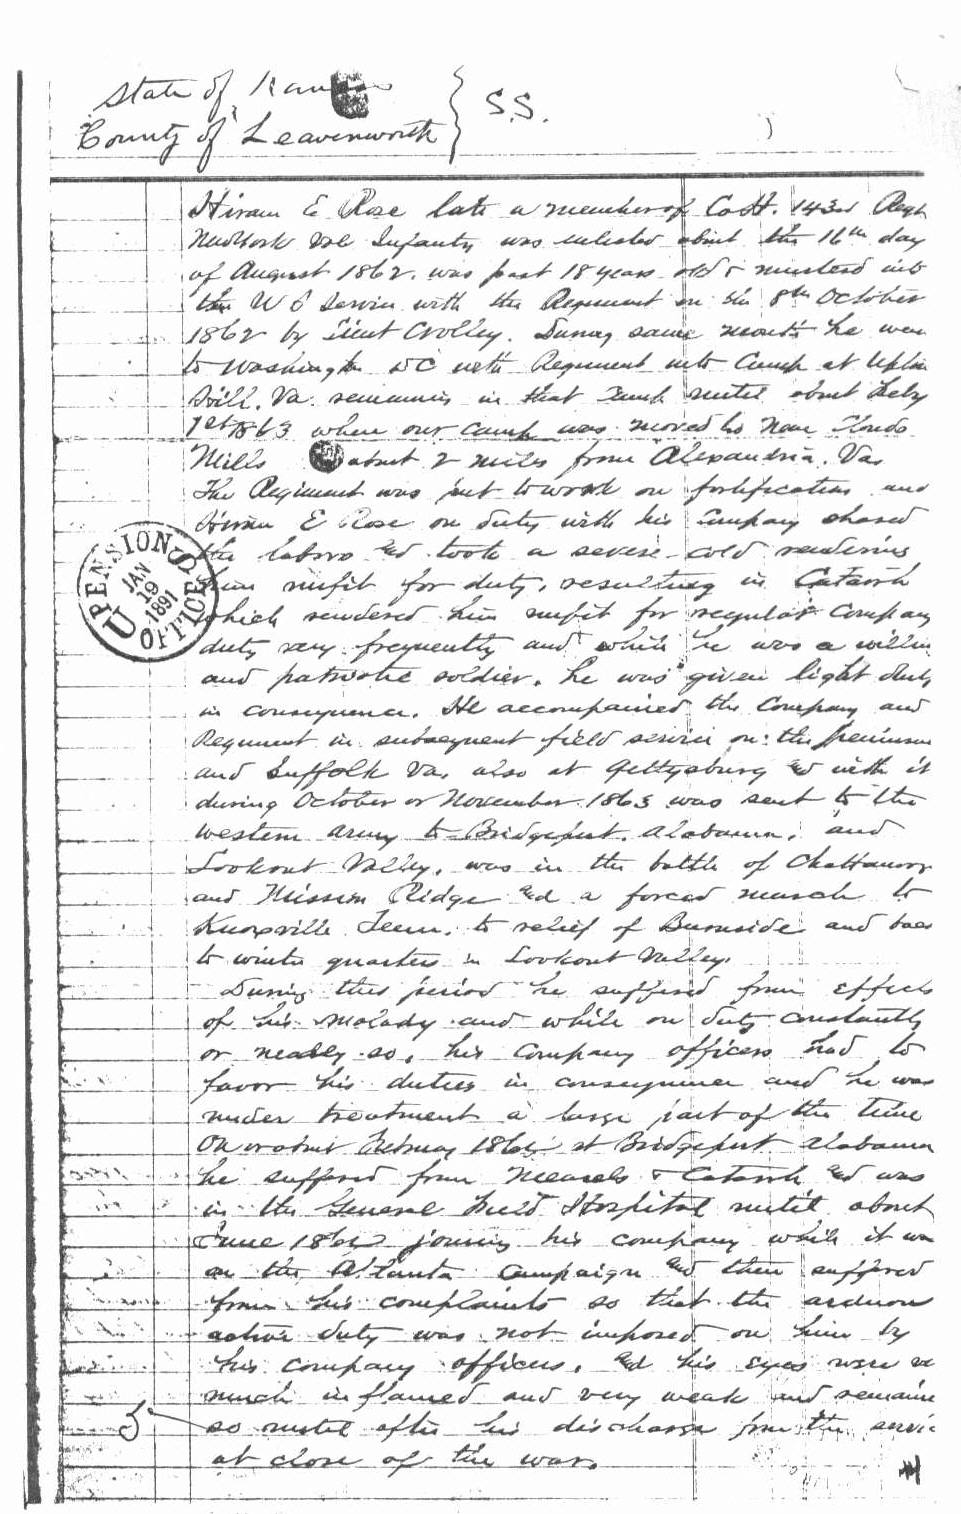 State of Kansas
County of Leavenworth } S.S.
Hiram E Rose late a member of Co H. 143rd Regt
New York Vol Infantry was enlisted about the 16th day
of August 1862. was past 18 years old & mustered into
the U S Service with the Regiment on the 8th October
1862 by Lieut Crolley. During same month he wen
to Washington DC with Regiment into Camp at Upton
Hill. Va. remaining in that Camp until about Feby
1st 1863 when our camp was moved to near Clouds
Mills about 2 miles from Alexandria. Va.
The Regiment was put to work on fortifications and
Hiram E Rose on duty with his Company shared
the labors and took a severe cold rendering
him unfit for duty, resulting in Catarrh
which rendered him unfit for regular Company
duty very frequently and while he was a willin
and patriotic soldier. he was given light duty
in consequence. He accompanied the Company and
Regiment in subsequent field service on the peninsu
and Suffolk Va. also at Gettysburg and with it
during October or November 1863 was sent to the
western army to Bridgeport. Alabama. and
Lookout Valley. was in the battle of Chattanoog
and Mission Ridge and a forced march to
Knoxville Tenn. to relief of Burnside and bac
to winter quarters in Lookout Valley.
During this period he suffered from effects
of his malady and while on duty constantly
or nearly so, his Company officers had to
favor his duties in consequence and he was
under treatment a large part of the time
On or about February 1864 at Bridgeport Alabama
he suffered from Measels & Catarrh and was
in the General Field Hospital until about
June 1864 joining his company while it wa
on the Atlanta Campaign and then suffered
from his complaints so that the arduou
active duty was not imposed on him by
his company officers. and his eyes were ve
much inflamed and very weak and remaine
so until after his discharge from the servic
at close of the war.
U S PENSION OFFICE
JAN
19
1891